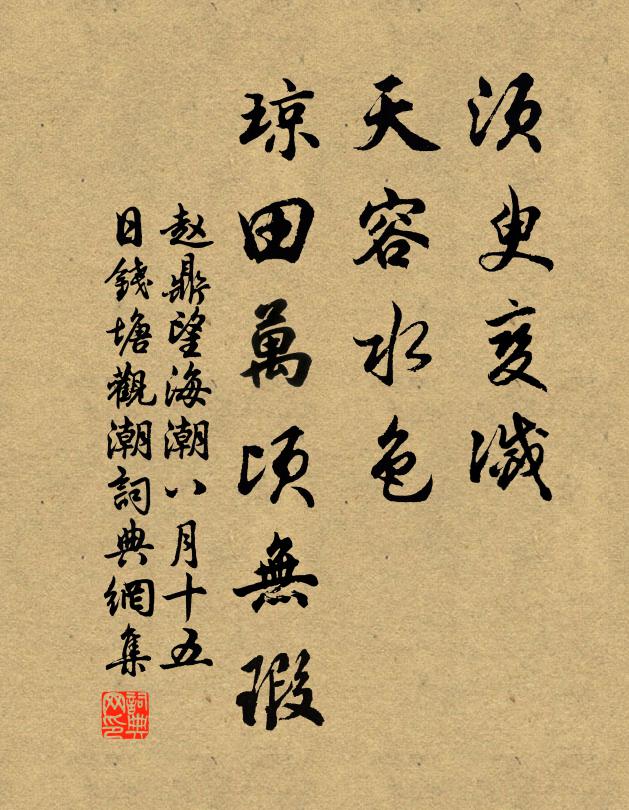 須臾变滅
天容水色
琼田萬頃無瑕
赵鼎望海潮八月十五
日錢塘觀潮詞典網集
詞典
网印